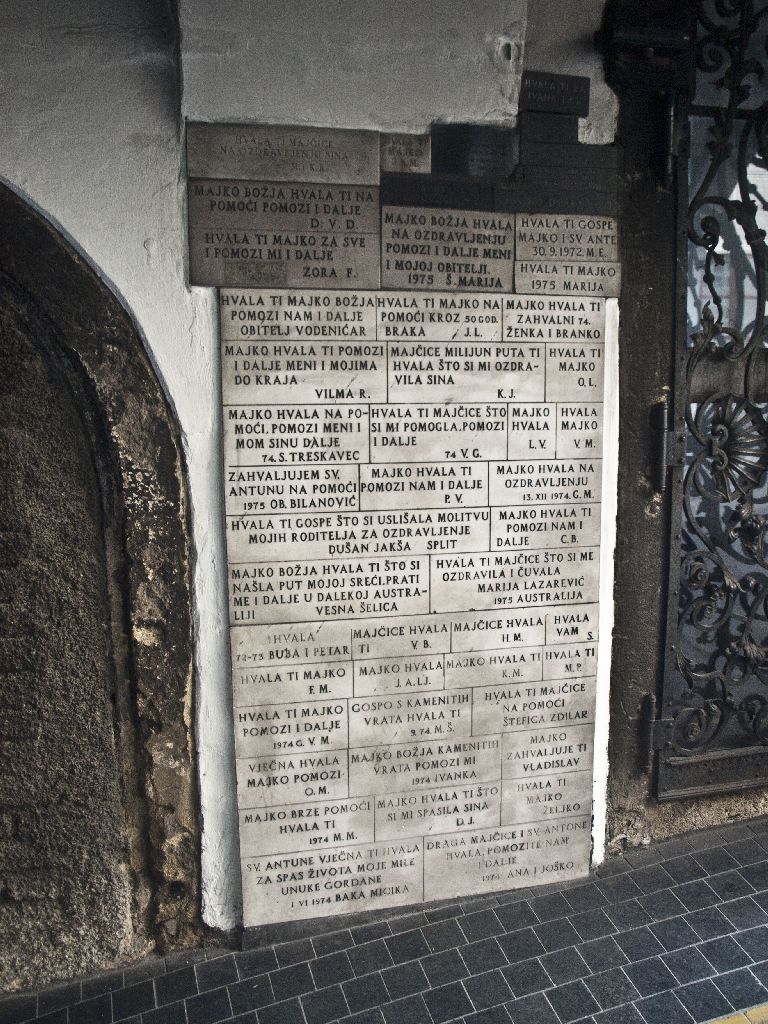 HVALA TI
IVANA
HVALA TI MAJČICE
NA OZDRAVLJENJU SINA
HVALA TI
MAJKO
MAJKO BOŽJA HVALA TI NA
POMOĆI POMOZI I DALJE
D. V. D.
HVALA TI MAJKO ZA SVE
I POMOZI MI I DALJE
ZORA F.
MAJKO BOŽJA HVALA
NA OZDRAVLJENJU
POMOZI I DALJE MENI
I MOJOJ OBITELJI.
1975 Š. MARIJA
HVALA TI GOSPE
MAJKO I SV ANTE
30. 9. 1972. M. E.
HVALA TI MAJKO
1975 MARIJA
HVALA TI MAJKO BOŽJA
POMOZI NAM I DALJE
OBITELJ VODENIČAR
HVALA TI MAJKO NA
POMOĆI KROZ 50 GOD.
BRAKA J. L.
MAJKO HVALA TI
ZAHVALNI 74.
ŽENKA I BRANKO
MAJKO HVALA TI POMOZI
I DALJE MENI I MOJIMA
DO KRAJA
VILMA R.
MAJČICE MILIJUN PUTA TI
HVALA ŠTO SI MI OZDRA-
VILA SINA
K. J.
HVALA TI
MAJKO
O. L.
MAJKO HVALA NA PO-
MOĆI. POMOZI MENI I
MOM SINU DALJE
74. S. TRESKAVEC
HVALA TI MAJČICE ŠTO
SI MI POMOGLA. POMOZI
I DALJE
74 V. G.
MAJKO
HVALA
L. V.
HVALA
MAJKO
V. M.
ZAHVALJUJEM SV.
ANTUNU NA POMOĆI
1975 OB. BILANOVIĆ
MAJKO HVALA TI
POMOZI NAM I DALJE
P. V.
MAJKO HVALA NA
OZDRAVLJENJU
13. XII 1974. G. M.
HVALA TI GOSPE ŠTO SI USLIŠALA MOLITVU
MOJIH RODITELJA ZA OZDRAVLJENJE
DUŠAN JAKŠA SPLIT
MAJKO HVALA TI
POMOZI NAM I
DALJE C. B.
MAJKO BOŽJA HVALA TI ŠTO SI
NAŠLA PUT MOJOJ SREĆI. PRATI
ME I DALJE U DALEKOJ AUSTRA-
LIJI VESNA ŠELICA
HVALA TI MAJČICE ŠTO SI ME
OZDRAVILA I ČUVALA
MARIJA LAZAREVIĆ
1975 AUSTRALIJA
HVALA
72-73 BUBA I PETAR
MAJČICE HVALA
TI V. B.
MAJČICE HVALA
H. M.
HVALA
VAM S.
HVALA TI MAJKO
F. M.
MAJKO HVALA
J. A. LJ.
MAJKO HVALA TI
K. M.
HVALA TI
M. P.
HVALA TI MAJKO
POMOZI I DALJE
1974 G. V. M.
GOSPO S KAMENITIH
VRATA HVALA TI
9. 74. M. Š.
HVALA TI MAJČICE
NA POMOĆI
ŠTEFICA ZDILAR
VJEČNA HVALA
MAJKO POMOZI
O. M.
MAJKO BOŽJA KAMENITIH
VRATA POMOZI MI
1974 IVANKA
MAJKO
ZAHVALJUJE TI
VLADISLAV
MAJKO BRZE POMOĆI
HVALA TI
1974 M. M.
MAJKO HVALA TI ŠTO
SI MI SPASILA SINA
D. J.
HVALA TI
MAJKO
ŽELJKO
SV. ANTUNE VJEČNA TI HVALA
ZA SPAS ŽIVOTA MOJE MILE
UNUKE GORDANE
1 VI 1974 BAKA MICIKA
DRAGA MAJČICE I SV. ANTONE
HVALA, POMOZITE NAM
I DALJE
1974 ANA I JOŠKO